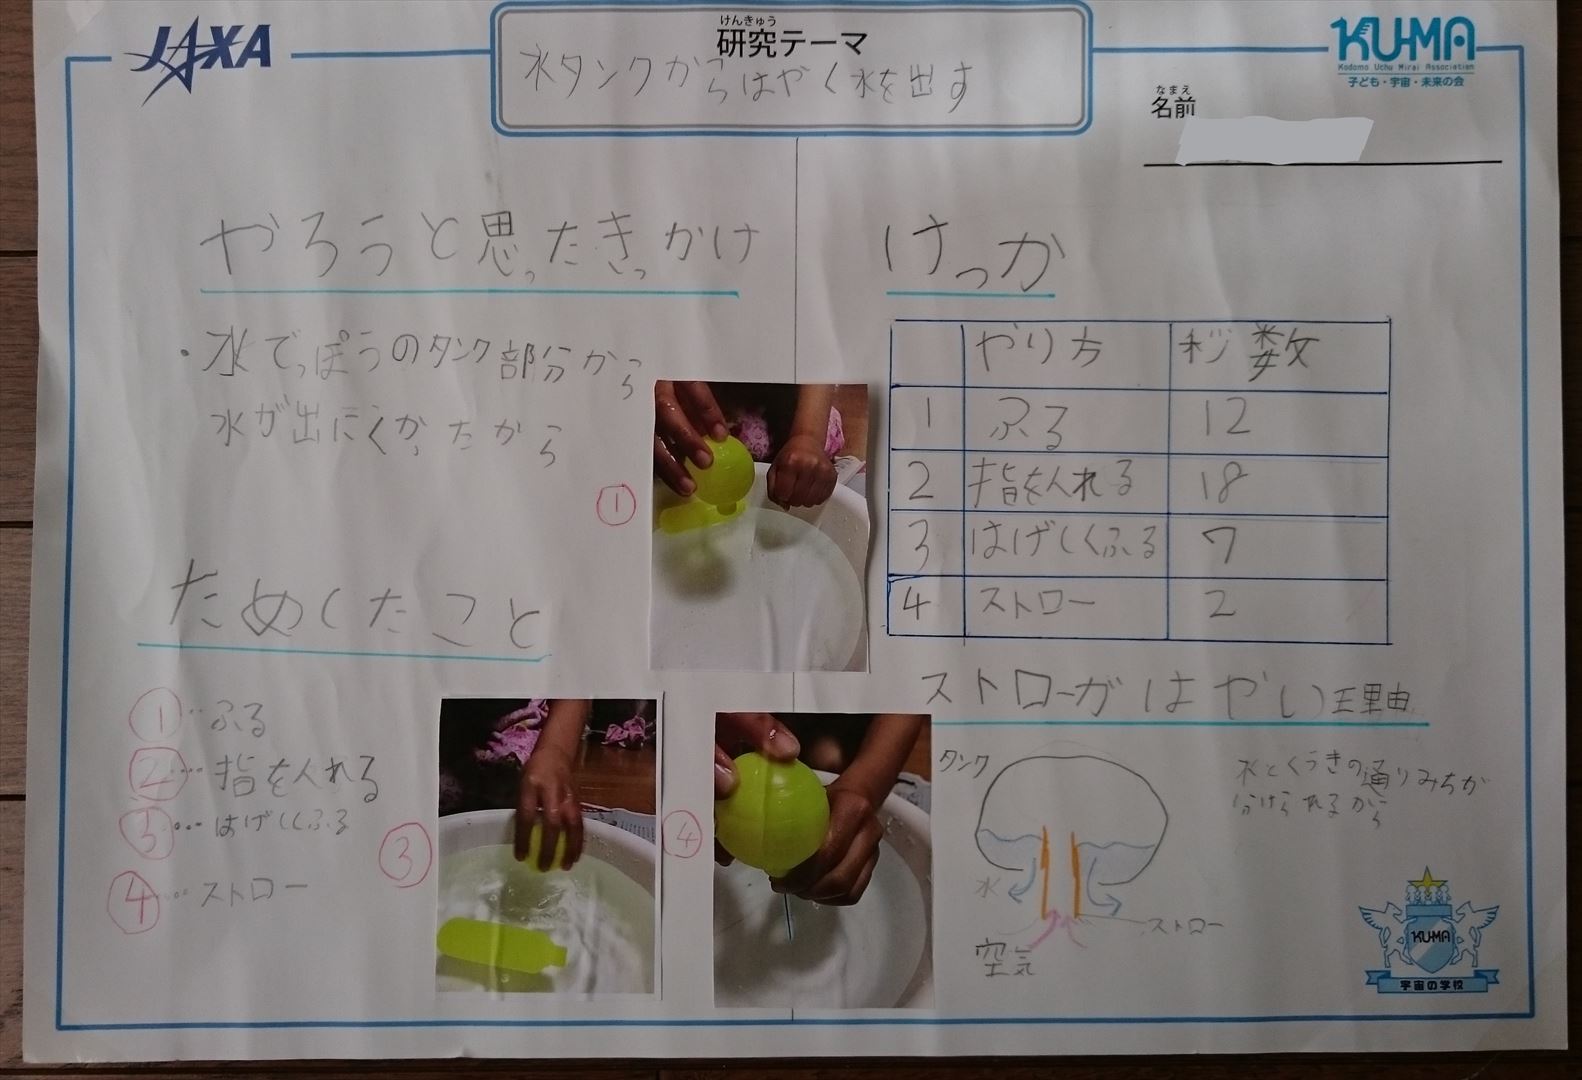 JAXA
けんきゅう
研究テーマ
水タンクからはやく水を出す
KU-MA
Kodomo Uchu Mirai Association
子ども・宇宙・未来の会
なまえ
名前
やろうと思ったきっかけ
・水でっぽうのタンク部分から
水が出にくかったから
ためしたこと
①‥ふる
②‥‥指を入れる
③‥‥はげしくふる
④‥‥ストロー
①
③
④
けっか
やり方 秒数
1 ふる 12
2 指を入れる 18
3 はげしくふる 7
4 ストロー 2
ストローがはやい理由
タンク
水とくうきの通りみちが
分けられるから
水
ストロー
空気
KUMA
宇宙の学校